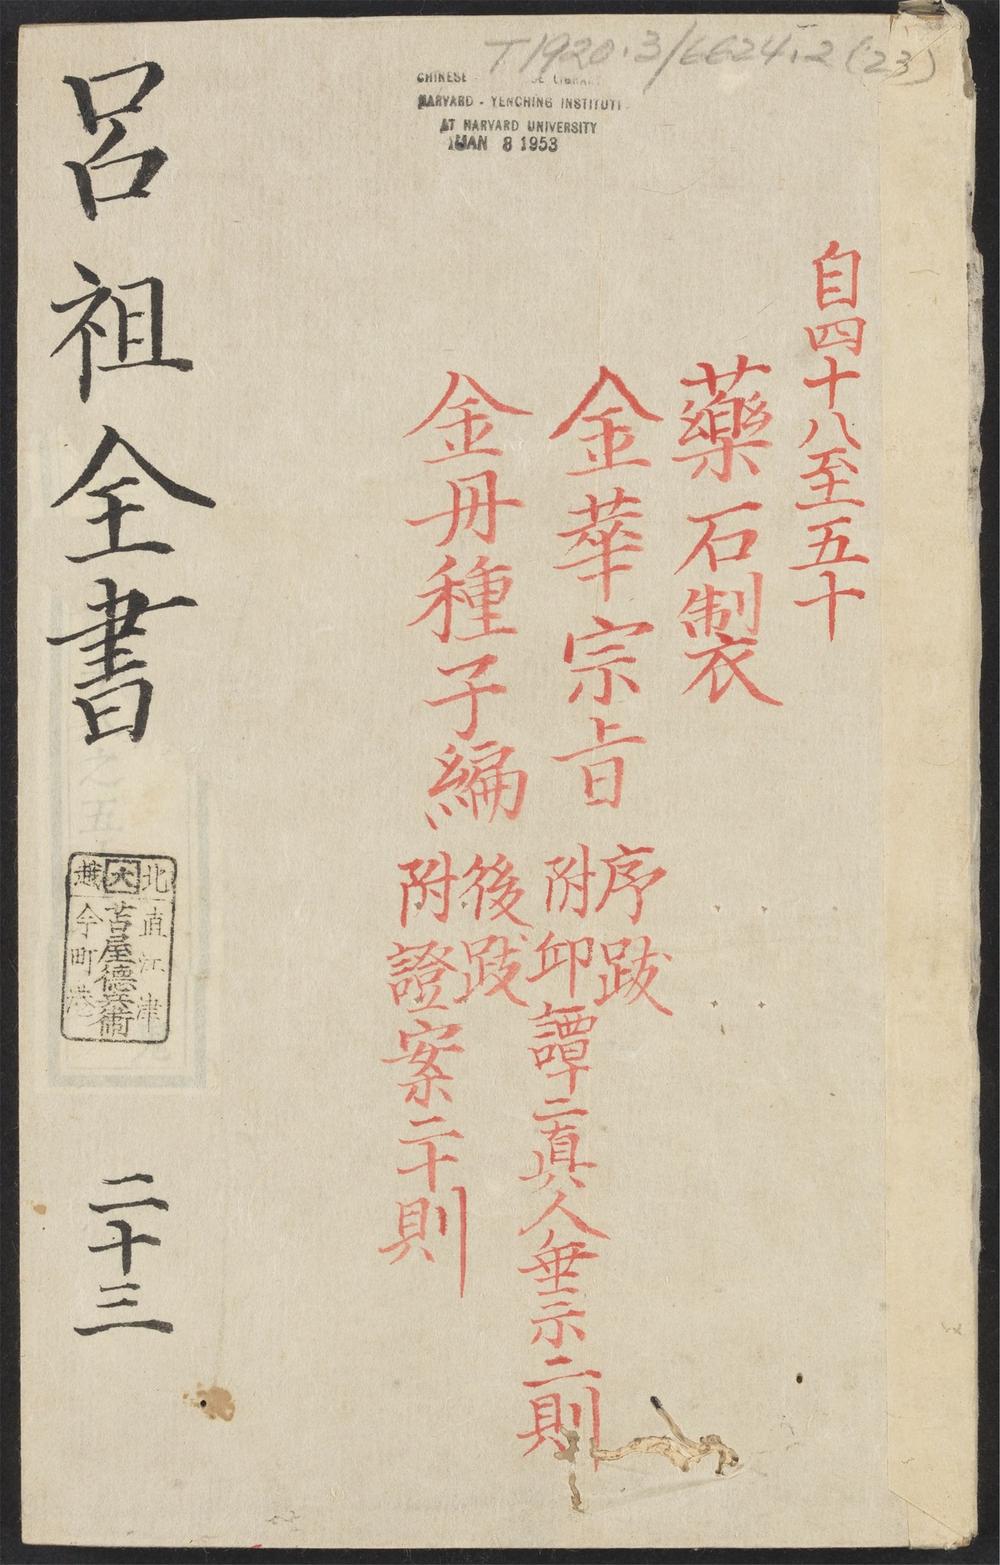 T1920.3/6624.2(23)
CHINESE
HARVARD-YENCHING INSTITUTE
AT HARVARD UNIVERSITY
JAN 8 1953
自四十八至五十
藥石製
金華宗旨
序跋
附邱譚二真人垂示二則
金丹種子編
後跋
附證案二十則
呂祖全書
北大越
直江津
苫屋德兵衛
今町港
之五
二十三